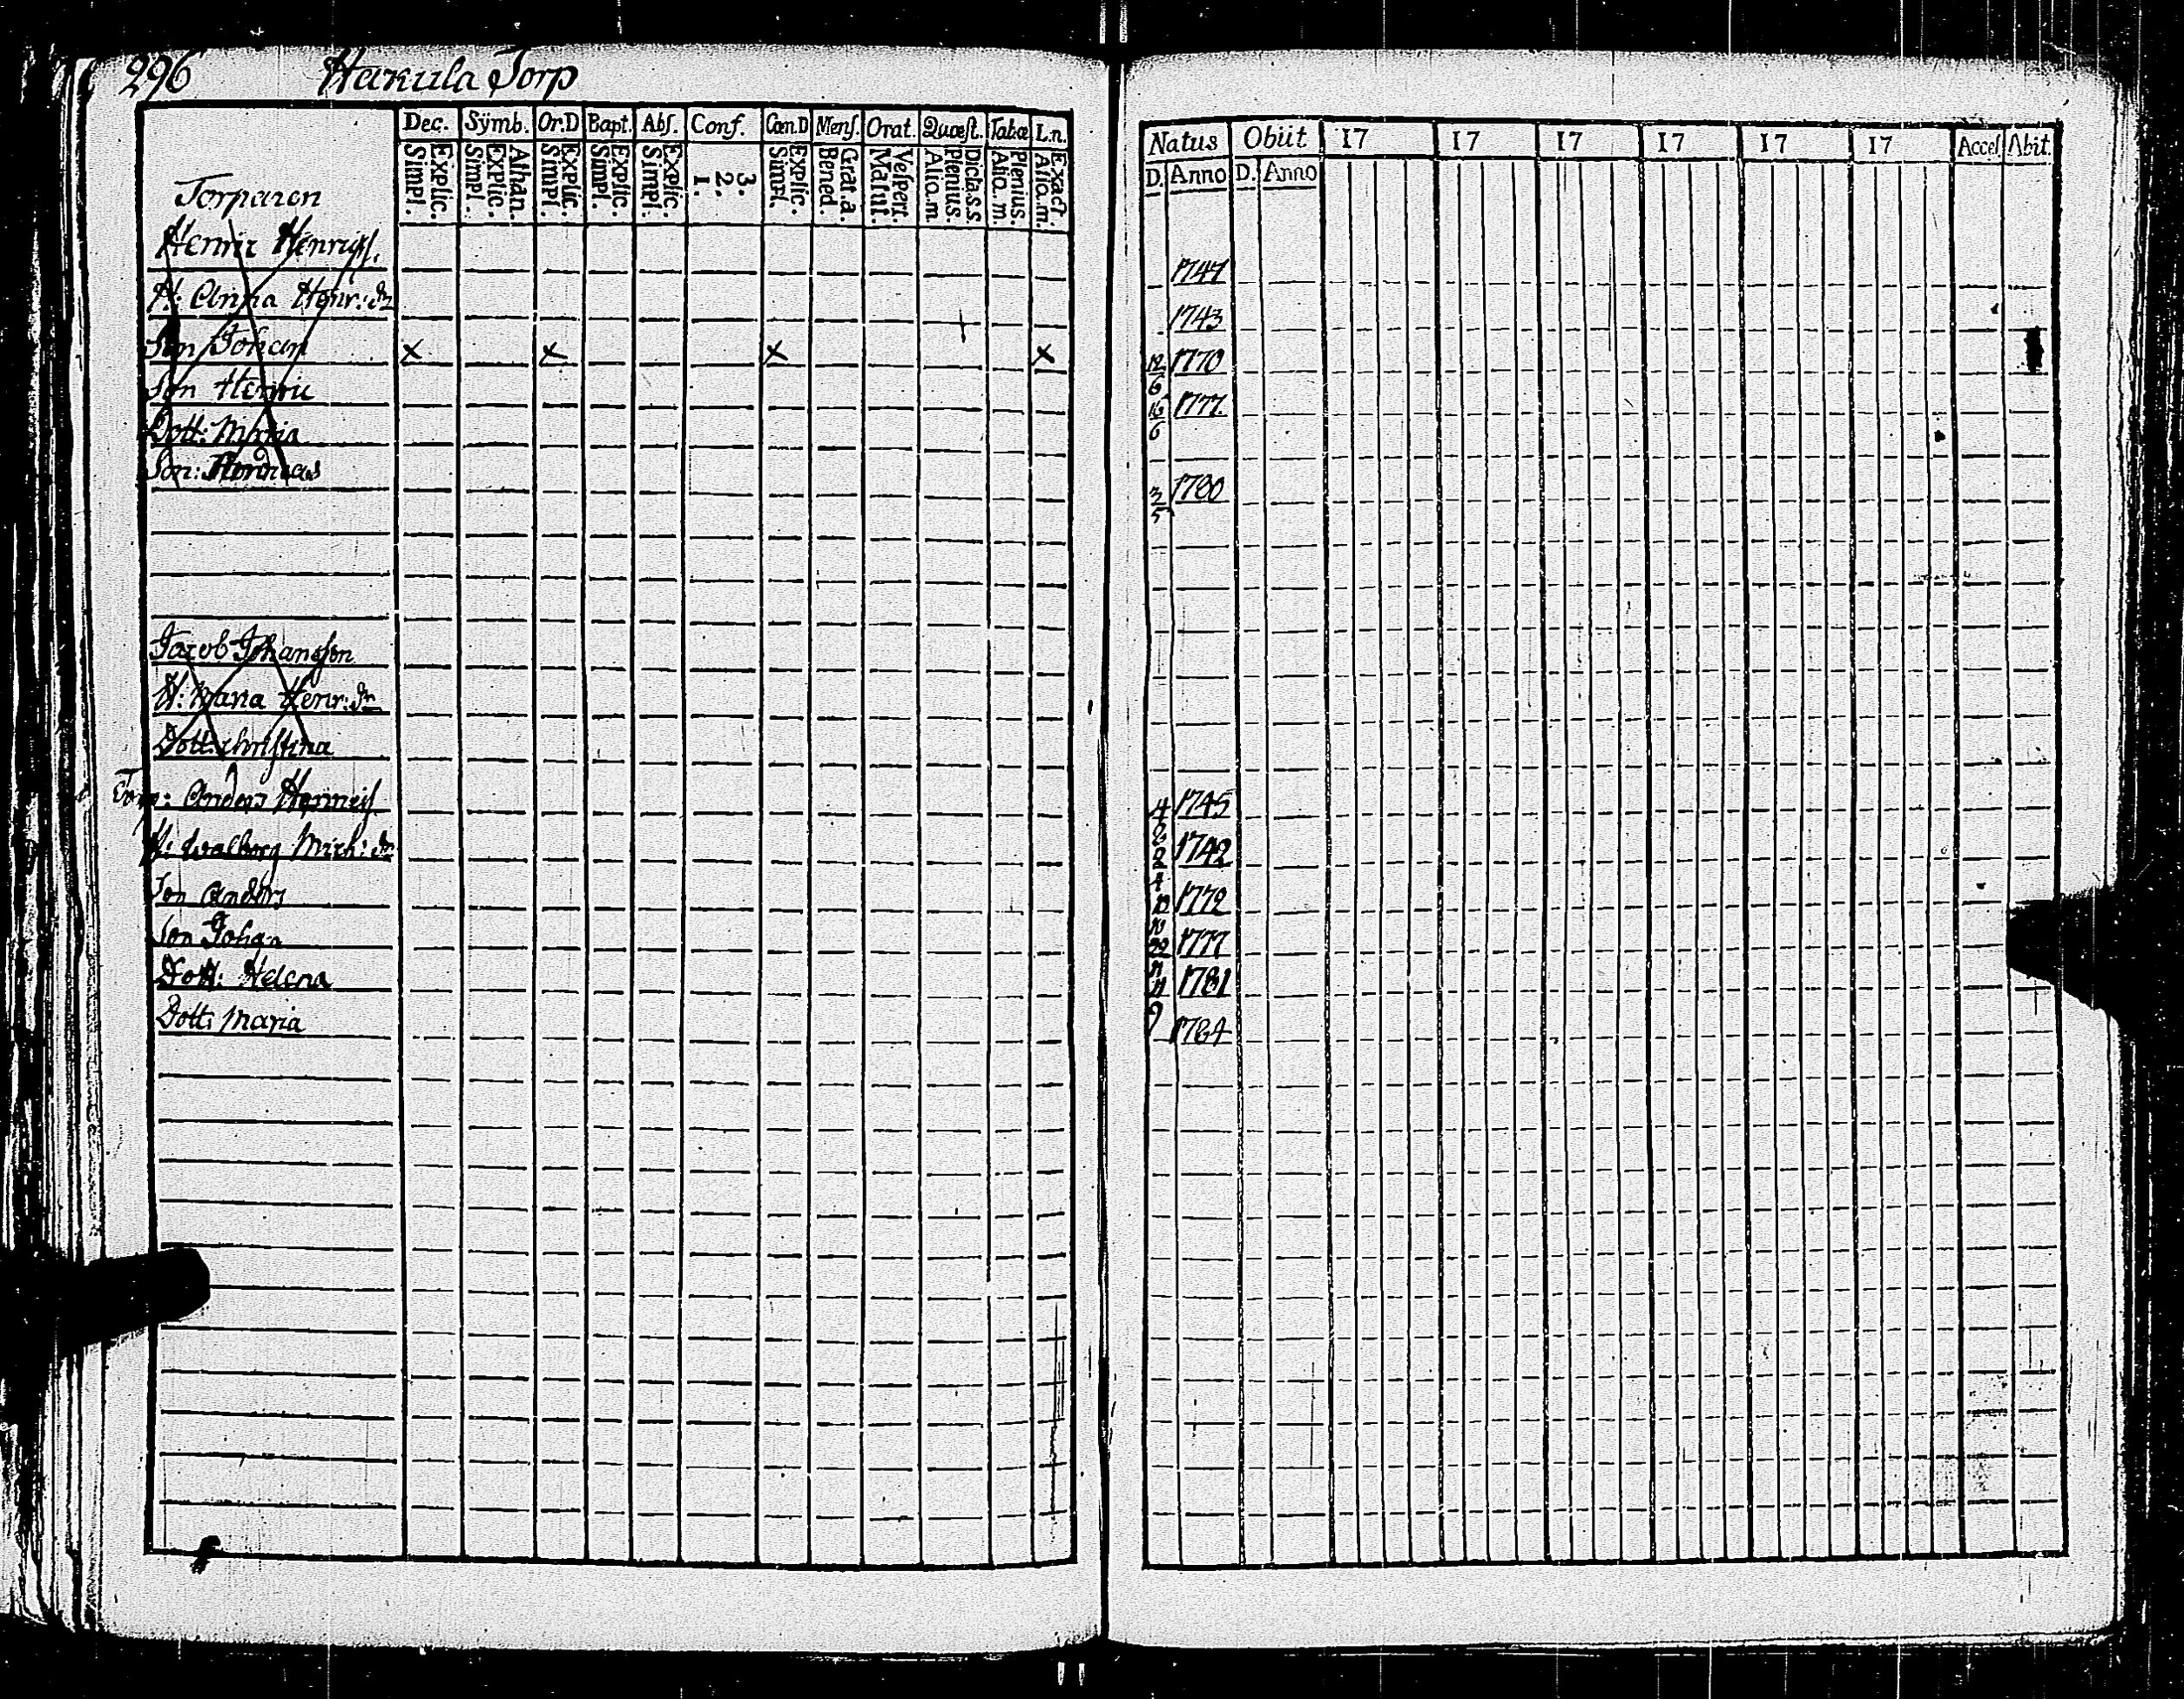 296 Hakula Torp
Dec. Sÿmb. Or.D Bapt. Abſ. Conf. Cœn.D Menſ. Orat. Quæſt. Tabæ L.n.
Explic. Simpl. Athan. Explic. Simpl. Explic. Simpl. Explic. Simpl. Explic. Simpl. 3. 2. 1. Explic. Simpl. Grat.a. Bened. Veſpert. Matut. Dicta.s.s. Plenius. Aliq.m. Plenius. Aliq.m. Exact. Aliq.m.
Natus Obiit 17 17 17 17 17 17 Acceſ. Abit.
D. Anno D. Anno
Torparen
Henric Henricſ. 1747
H: Anna Henr: dr 1743
Son Johan x x x x 12/6 1770
Son Henric 16/6 1777.
Dott: Maria
Son: Andreas 3/5 1780
Jacob Johansſon
H: Maria Henr: dr
Dott: Christina
Torp: Anders Henricſ 1745
H: Walborg Mich: dr 1742
Son Anders 1772
Son Johan 1777
Dott: Helena 1781
Dott: Maria 1784